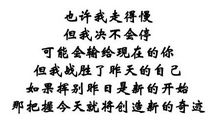 也许我走得慢
但我决不会停
可能会输给现在的你
但我战胜了昨天的自己
如果挥别昨日是新的开始
那把握今天就将创造新的奇迹